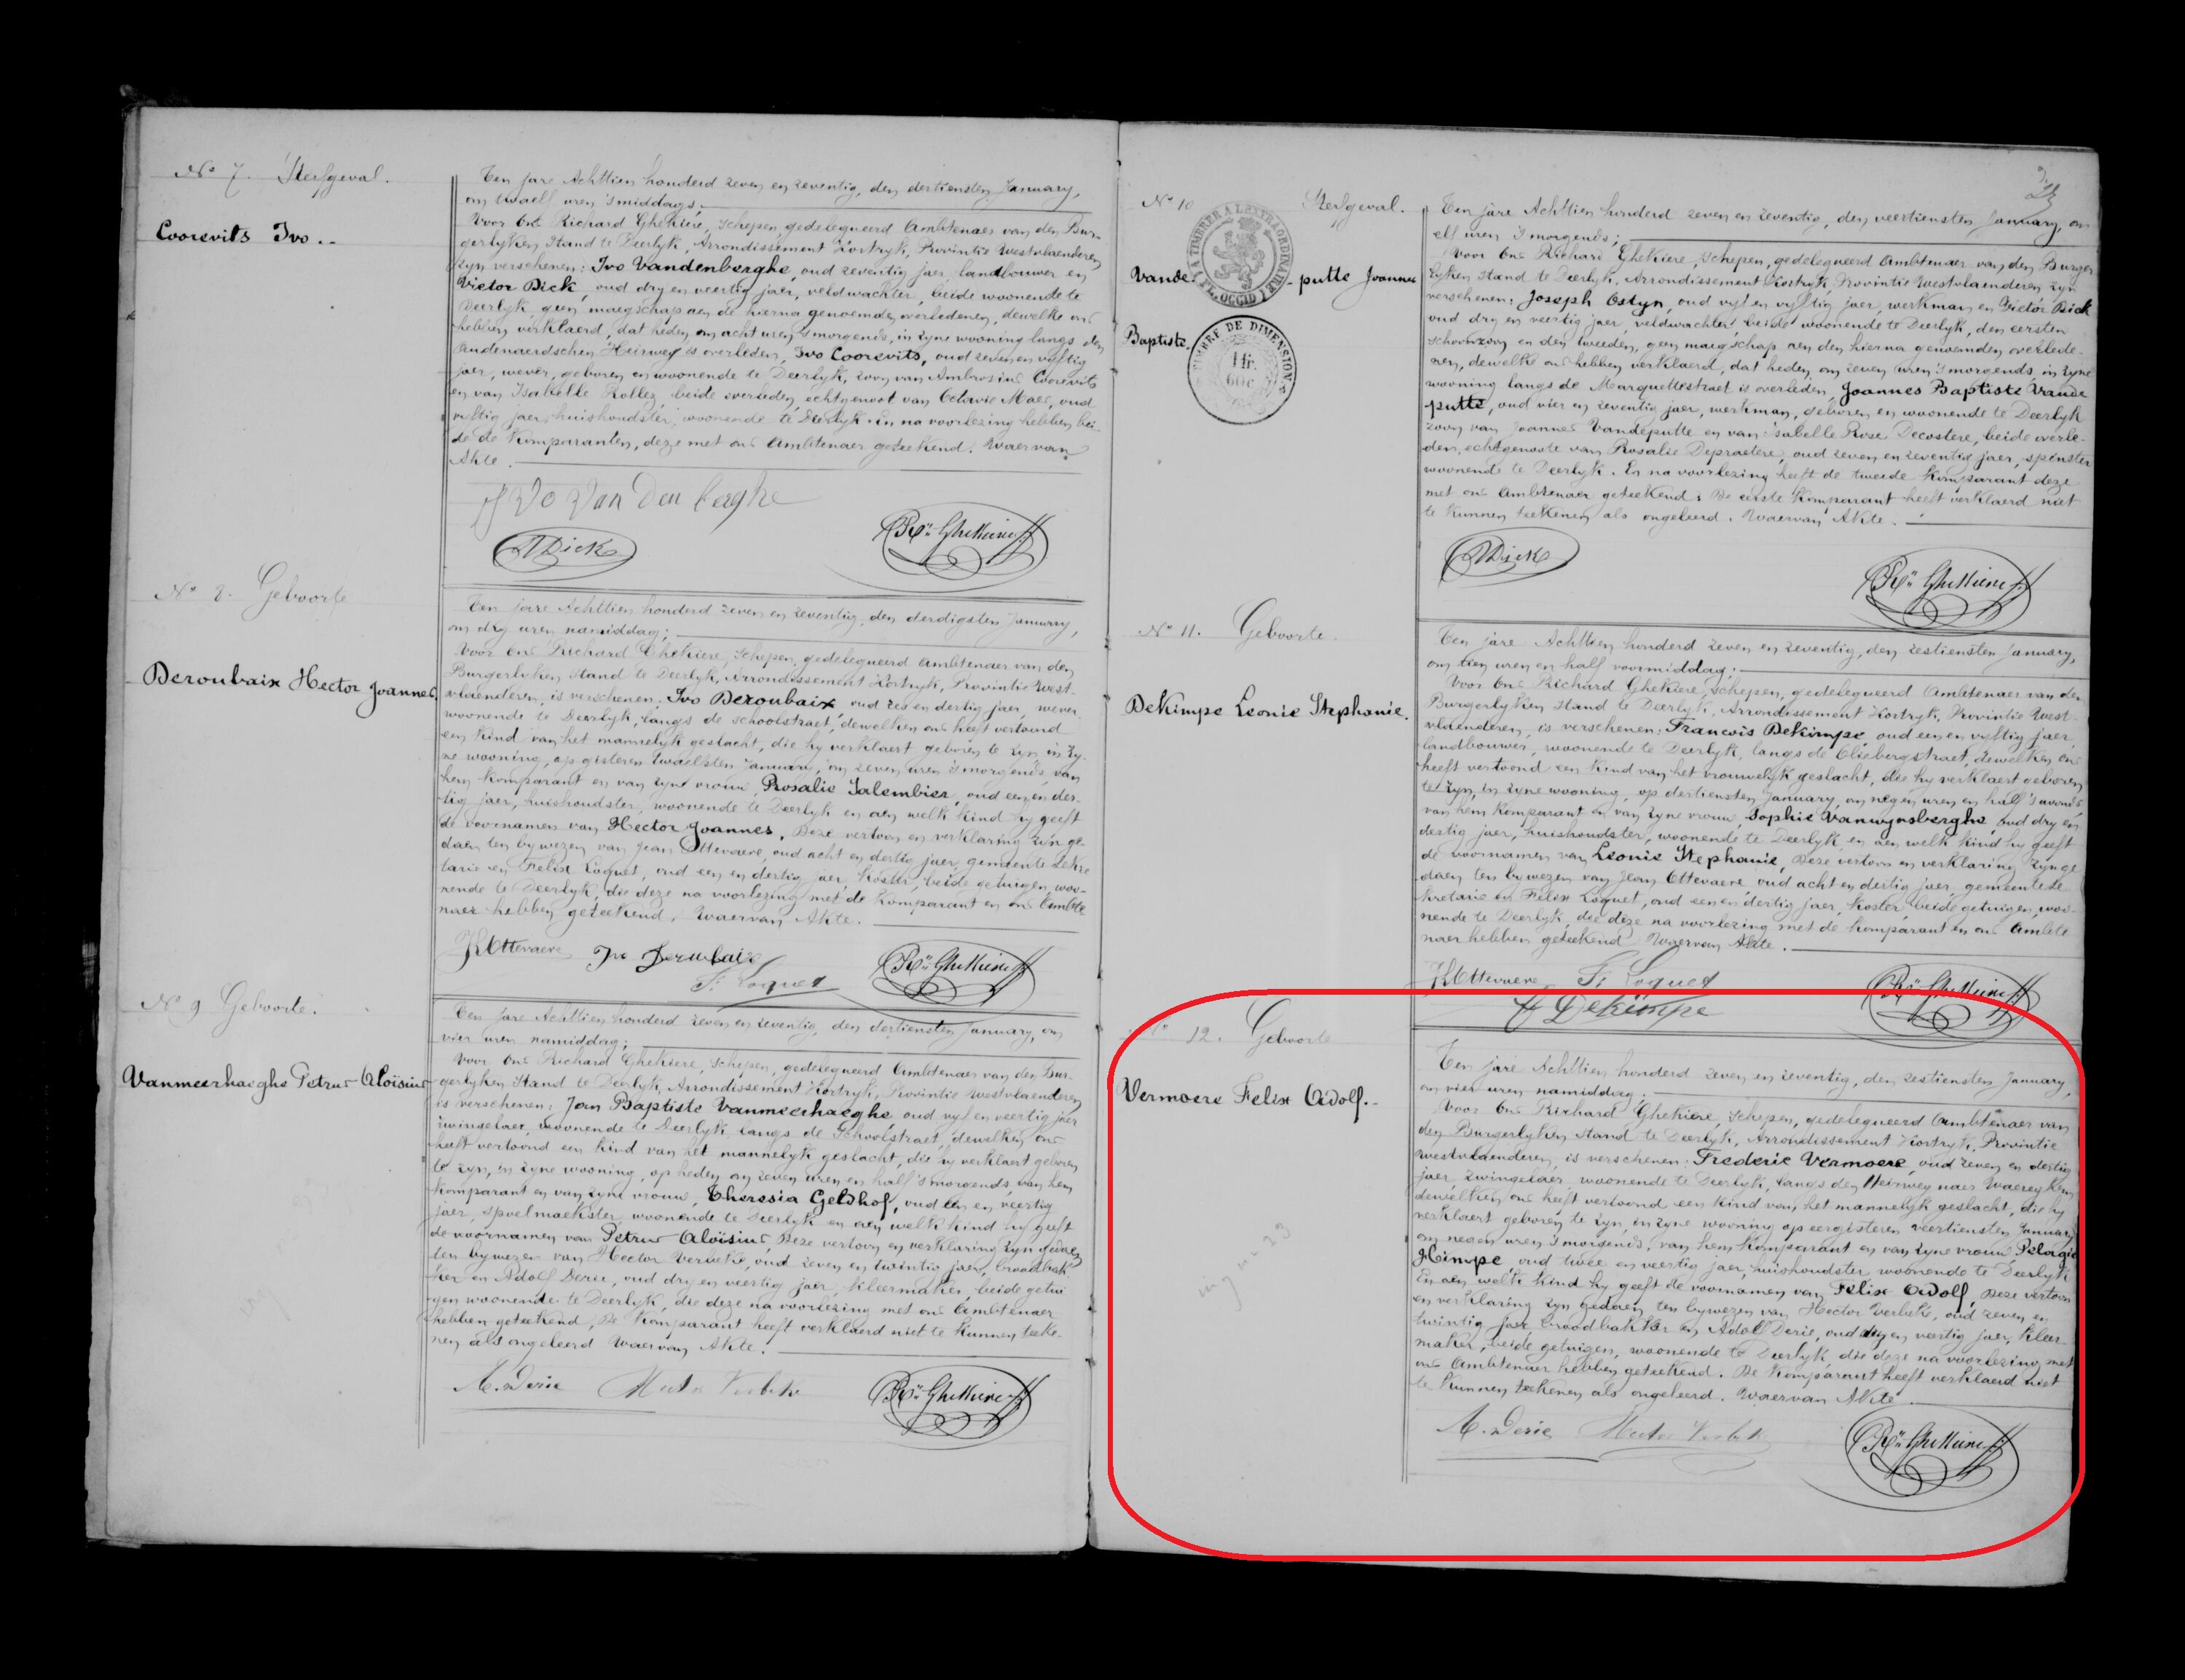 No 7. Sterfgeval.
Coorevits Ivo.
Ten jare Achttien honderd zeven en zeventig, den dertiensten January,
om twaelf uren 'smiddags.
Voor Ons Richard Ghekiere, Schepen, gedelegueerd Ambtenaer van den Bur-
gerlyken Stand te Deerlyk, Arrondissement Kortryk, Provintie Westvlaenderen
zyn verschenen: Ivo Vandenberghe, oud zeventig jaer, landbouwer en
Victor Dick, oud dry en veertig jaer, veldwachter, beide woonende te
Deerlyk, geen maegschap aen de hierna genoemden overledenen, dewelke ons
hebben verklaerd, dat heden, om acht uren 'smorgends, in zyne wooning langs den
Audenaerdschen Heirweg is overleden, Ivo Coorevits, oud zeven en vyftig
jaer, wever, geboren en woonende te Deerlyk, zoon van Ambrosius Coorevits
en van Isabelle Rollez, beide overleden, echtgenoot van Octavie Maes, oud
vyftig jaer, huishoudster, woonende te Deerlyk. En na voorlezing hebben bei-
de de Komparanten, deze met ons Ambtenaer geteekend. Waervan
Akte.
Ivo Van Den berghe
VDick
Rd Ghekiere
No 8. Geboorte
Deroubaix Hector Joannes.
Ten jare Achttien honderd zeven en zeventig, den derdigsten January,
om dry uren namiddag;
Voor Ons Richard Ghekiere, Schepen, gedelegueerd Ambtenaer van den
Burgerlyken Stand te Deerlyk, Arrondissement Kortryk, Provintie West-
vlaenderen, is verschenen. Ivo Deroubaix, oud zes en dertig jaer, wever
woonende te Deerlyk, langs de schoolstraet, dewelken ons heeft vertoond
een kind van het mannelyk geslacht, die hy verklaert geboren te zyn in zy-
ne wooning, op gisteren twaelfsten January, om zeven uren 'smorgends, van
hem komparant en van zyne vrouw, Rosalie Salembier, oud een en der-
tig jaer, huishoudster, woonende te Deerlyk en aen welk kind hy geeft
de voornamen van Hector Joannes. Deze vertoon en verklaring zyn ge-
daen ten bywezen van Jean Ottevaere, oud acht en dertig jaer, gemeente Sekre
taris en Felix Loquet, oud een en dertig jaer, Koster, beide getuigen, woo-
nende te Deerlyk, die deze na voorlezing met de Komparant en ons Ambte
naer hebben geteekend. Waervan Akte.
JOttevaere Ivo Deroubaix
F. Loquet
Rd Ghekiere
No 9 Geboorte.
Vanmeerhaeghe Petrus Aloïsius
Ten jare Achttien honderd zeven en zeventig, den dertiensten January, om
vier uren namiddag;
Voor Ons Richard Ghekiere, Schepen, gedelegueerd Ambtenaer van den Bur-
gerlyken Stand te Deerlyk, Arrondissement Kortryk, Provintie Westvlaenderen
is verschenen: Jan Baptiste Vanmeerhaeghe, oud vyf en veertig jaer
zwingelaer, woonende te Deerlyk, langs de Schoolstraet, dewelken ons
heeft vertoond een kind van het mannelyk geslacht, die hy verklaert geboren
te zyn, in zyne wooning, op heden om zeven uren en half 'smorgends, van hem
Komparant en van zyne vrouw, Theresia Gelshof, oud een en veertig
jaer, spoelmaekster, woonende te Deerlyk en aen welk kind hy geeft
de voornamen van Petrus Aloïsius Deze vertoon en verklaring zyn gedaen
ten bywezen van Hector Verbeke, oud zeven en twintig jaer, broodbak-
ker en Adolf Derie, oud dry en veertig jaer, Kleermaker, beide getui-
gen woonende te Deerlyk, die deze na voorlezing met ons Ambtenaer
hebben geteekend. De Komparant heeft verklaerd niet te Kunnen teeke-
nen als ongeleerd Waervan Akte.
A. Derie Hector Verbeke
Rd Ghekiere
No 10 Sterfgeval.
Vande-putte Joannes
Baptiste.
A TIMBRER A L'EXTRAORDINAIRE
FL. OCCID
TIMBRE DE DIMENSION
1 fr.
60 c.
Ten jare Achttien honderd zeven en zeventig, den veertiensten January, om
elf uren 'smorgends;
Voor Ons Richard Ghekiere, Schepen, gedelegueerd Ambtenaer van den Burger
lyken Stand te Deerlyk, Arrondissement Kortryk, Provintie Westvlaenderen zyn
verschenen: Joseph Ostyn, oud vyf en vyftig jaer, werkman en Victor Dick
oud dry en veertig jaer, veldwachter, beide woonende te Deerlyk, den eersten
schoonzoon en den tweeden, geen maegschap aen den hierna genoemden overlede-
nen, dewelke ons hebben verklaerd, dat heden, om zeven uren 'smorgends, in zyne
wooning langs de Marquettestraet is overleden, Joannes Baptiste Vande
putte, oud vier en zeventig jaer, werkman, geboren en woonende te Deerlyk
zoon van Joannes Vandeputte en van Isabelle Rose Decostere, beide overle-
den, echtgenoote van Rosalie Depraetere, oud zeven en zeventig jaer, spinster
woonende te Deerlyk. En na voorlezing heeft de tweede Komparant deze
met ons Ambtenaer geteekend; De eerste Komparant heeft verklaerd niet
te Kunnen teekenen als ongeleerd. Waervan Akte.
VDick
Rd Ghekiere
No 11. Geboorte.
DeKimpe Leonie Stephanie.
Ten jare Achttien honderd zeven en zeventig, den zestiensten January,
om tien uren en half voormiddag;
Voor Ons Richard Ghekiere, Schepen, gedelegueerd Ambtenaer van den
Burgerlyken Stand te Deerlyk, Arrondissement Kortryk, Provintie West-
vlaenderen, is verschenen: Francois DeKimpe, oud een en vyftig jaer,
landbouwer, woonende te Deerlyk, langs de Oliebergstraet, dewelken ons
heeft vertoond een kind van het vrouwelyk geslacht, die hy verklaert geboren
te zyn, in zyne wooning, op dertiensten January, om negen uren en half 'savonds
van hem Komparant en van zyne vrouw, Sophie Vanwynsberghe, oud dry en
dertig jaer, huishoudster, woonende te Deerlyk, en aen welk kind hy geeft
de voornamen van Leonie Stephanie, Deze vertoon en verklaring zyn ge
daen ten bywezen van Jean Ottevaere, oud acht en dertig jaer, gemeente Se
kretaris en Felix Loquet, oud een en dertig jaer, Koster, beide getuigen, woo-
nende te Deerlyk, die deze na voorlezing met de Komparant en ons Ambte
naer hebben geteekend Waervan Akte.
JOttevaere F. Loquet
F DeKimpe
Rd Ghekiere
No 12. Geboorte
Vermoere Felix Adolf.
Ten jare Achttien honderd zeven en zeventig, den zestiensten January,
om vier uren namiddag;
Voor Ons Richard Ghekiere, Schepen, gedelegueerd Ambtenaer van
den Burgerlyken Stand te Deerlyk, Arrondissement Kortryk, Provintie
Westvlaenderen, is verschenen: Frederic Vermoere, oud zeven en dertig
jaer, zwingelaer, woonende te Deerlyk, langs den Heirweg naer Waereghem
dewelken ons heeft vertoond een kind van het mannelyk geslacht, die hy
verklaert geboren te zyn, in zyne wooning op eergisteren veertiensten January
om negen uren 'smorgends, van hem Komparant en van zyne vrouw Pelagie
Himpe, oud twee en veertig jaer, huishoudster woonende te Deerlyk
En aen welk Kind hy geeft de voornamen van Felix Adolf, Deze vertoon
en verklaring zyn gedaen ten bywezen van Hector Verbeke, oud zeven en
twintig jaer broodbakker en Adolf Derie, oud dry en veertig jaer, kleer-
maker, beide getuigen, woonende te Deerlyk, die deze na voorlezing met
ons Ambtenaer hebben geteekend. De Komparant heeft verklaerd niet
te Kunnen teekenen als ongeleerd. Waervan Akte.
A. Derie Hector Verbeke
Rd Ghekiere